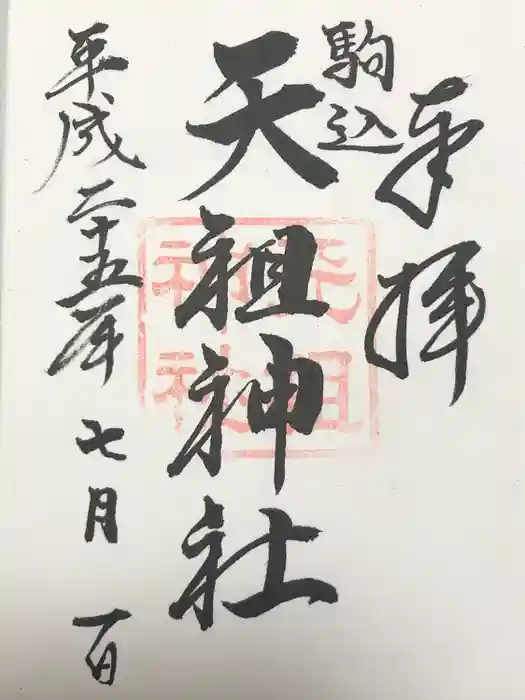 奉拝
駒込
天祖神社
天祖神社
平成二十五年七月一日